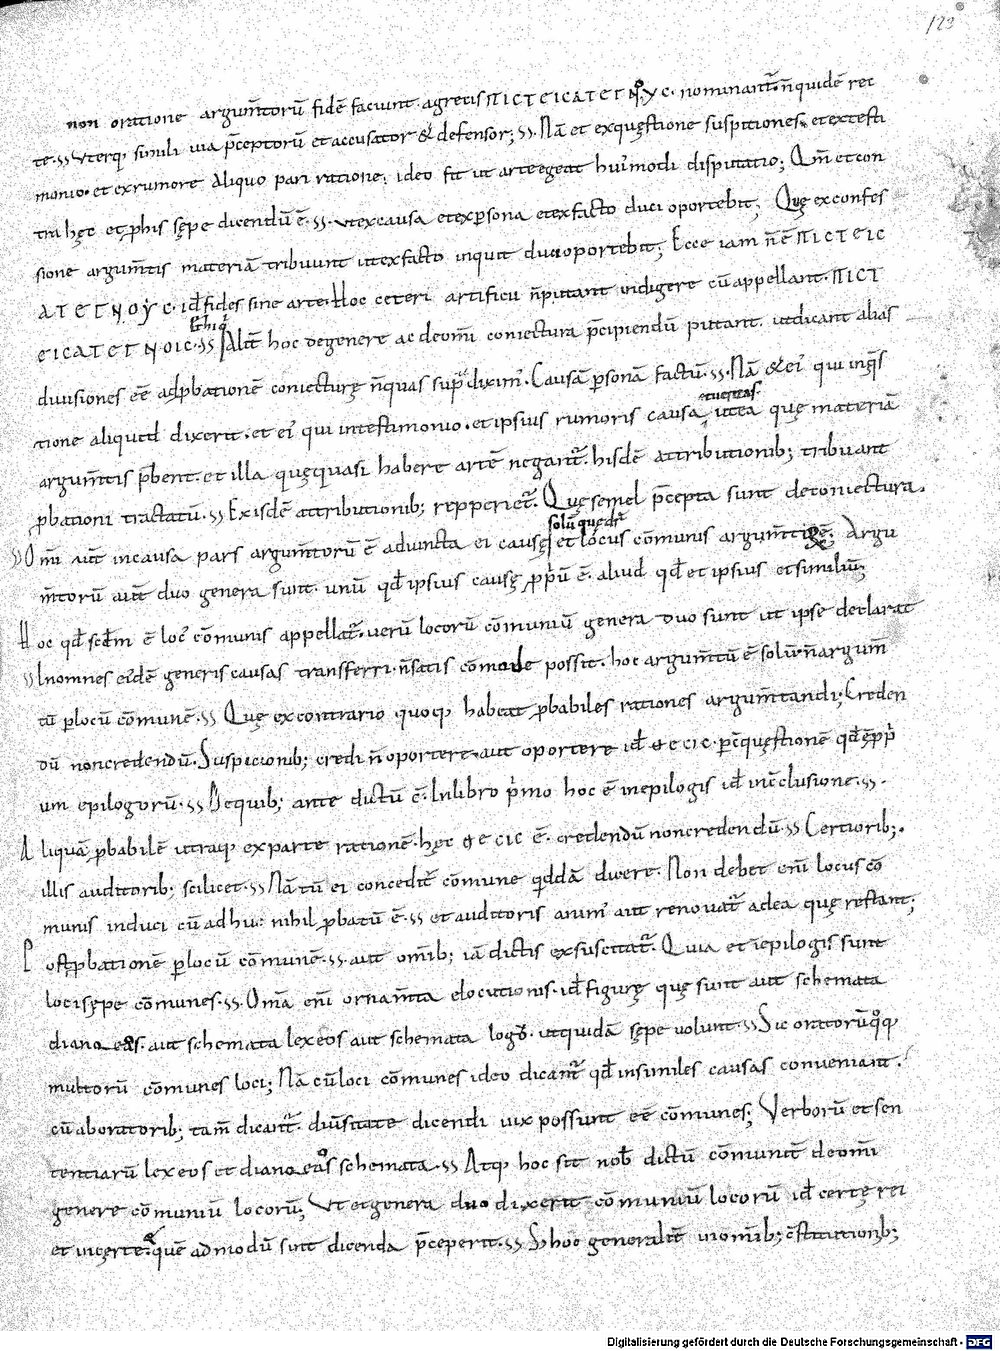 123
non oratione argum̄torū fidē faciunt. agrecis ΠΙCΤΕΙCΑΤΕΓΝΟΥC. nominant᷑. n̄quidē rec
te.⸓ Vterq; simili uia p̄ceptorū et accusator & defensor; ⸓ Nā et exquęstione suspitiones. et extesti
monio. et exrumore aliquo pari ratione; ideo fit ut arte egeat hui᾽modi disputatio; Qm̄ et con
tra hęc et p̱ his sępe dicendū ē. ⸓ utexcausa etexp̱sona etexfacto duci oportebit; Quę exconfes
sione argum̄tis materiā tribuunt utexfacto inquit duci oportebit; Ecce iam n̄ ē ΠΙCΤΕΙC
ΑΤΕΓΝΟΥC. id̄ fides sine arte. Hoc ceteri artificii n̄ putant indigere cū appellant. ΠΙCΤ
ΕΙCΑΤΕΓΝΟΙC. ⸓ Alit̄ hoc degenere ac deom̄i coniectura p̄cipiendū putant. utdicant alias
diuisiones eē adp̱bationē coniecturę n̄quas sup̄ dixim᾽. Causā p̱sonā factū. ⸓ Nā & ei᾽ qui inq̄s
tione aliquid dixerit. et ei᾽ qui intestimonio. et ipsius rumoris causa ueritas utea quę materiā
argum̄tis p̄bent. et illa quęquasi habere artē negant᷑. hisdē attributionib; tribuant
p̱bationi tractatū. ⸓ Exisdē attributionib; repperiet᷑. Quęsemel p̄cepta sunt deconiectura.
⸓ Om̄i aut̄ incausa pars argum̄torū ē adiuncta ei causę solū quędr̄ et locus cōmunis argum̄tis ē; Argu
m̄torū aut̄ duo genera sunt. unū qd̄ ipsius causę p̱p̄ū ē. aliud qd̄ et ipsius et similiū;
Hoc qd̄ scd̄m ē loc᾽ cōmunis appellat᷑. uerū locorū cōmuniū genera duo sunt ut ipse declarat
⸓ Inomnes ei᾽dē generis causas transferri. n̄satis cōmode possit. hoc argum̄tū ē solū n̄ argum̄
tū p̱locū cōmunē. ⸓ Quę excontrario quoq; habeat p̱babiles rationes argum̄tandi; Creden
dū noncredendū. Suspicionib; credi n̄ oportere. aut oportere id̄
um epilogorū. ⸓ Dequib; ante dictū ē. Inlibro p̄mo hoc ē inepilogis id̄ inc̄clusione. ⸓.
Aliquā p̱babilē utraq; exparte rationē. hęc ē. credendū noncredendū. ⸓ Certiorib;.
illis auditorib; scilicet. ⸓ Nā tū ei concedit᷑ cōmune q̇ddā dicere. Non debet eni̅ locus cō
munis induci cū adhuc nihil p̱batū ē. ⸓ et auditoris anim᾽ aut renouat᷑ adea quę restant;
Post p̱bationē p̱locū cōmunē. ⸓. aut om̄ib; iā dictis exsuscitat᷑. Quia et īepilogis sunt
locisępe cōmunes. ⸓. Om̄a eni̅ ornam̄ta elocutionis. id̄ figurę quę sunt aut schemata
dianoeas. aut schemata lexeos aut schemata logu. utquidā sępe uolunt. ⸓ Sic oratorū q̊q;
multorū cōmunes loci; Nā cū loci cōmunes ideo dicant᷑ qd̄ insimiles causas conueniant.
cū aboratorib; tam̄ dicant᷑. diuersitate dicendi uix possunt eē cōmunes; Verborū et sen
tentiarū lexeos et dianoeas schemata. ⸓ Atq; hoc sit nob̄ dictū cōmunit̄ deom̄i
genere cōmuniū locorū; Vt et genera duo dixerit cōmuniū locorū id̄ certę rei
et incerte. & quē admodū sint dicenda p̄ceperit. ⸓ S; hoc generalit̄ inom̄ib; c̄stitutionib;
Digitalisierung gefördert durch die Deutsche Forschungsgemeinschaft - DFG